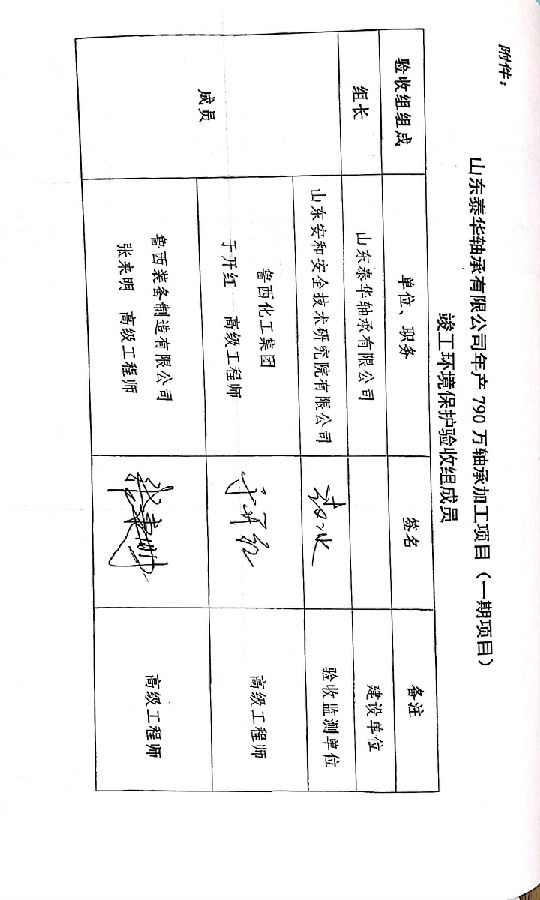 附件：
山东泰华轴承有限公司年产 790 万轴承加工项目（一期项目）
竣工环境保护验收组成员
验收组组成 单位、职务 签名 备注
组长 山东泰华轴承有限公司 建设单位
成员
山东安和安全技术研究院有限公司 验收监测单位
鲁西化工集团
于开红 高级工程师 于开红 高级工程师
鲁西装备制造有限公司
张来明 高级工程师 张来明 高级工程师